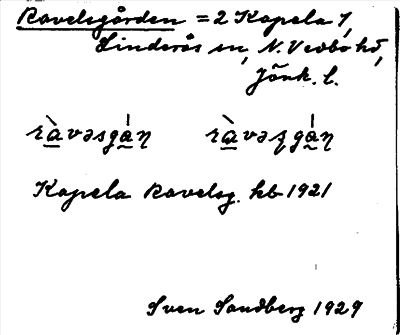 Ravelsgården = 2 Kapela 1/,
Linderås sn, N. Vedbo hd,
Jönk. l.
ràvəsgán ràvəsgán
Kapela Ravelsg. kb 1921
Sven Sandberg 1929